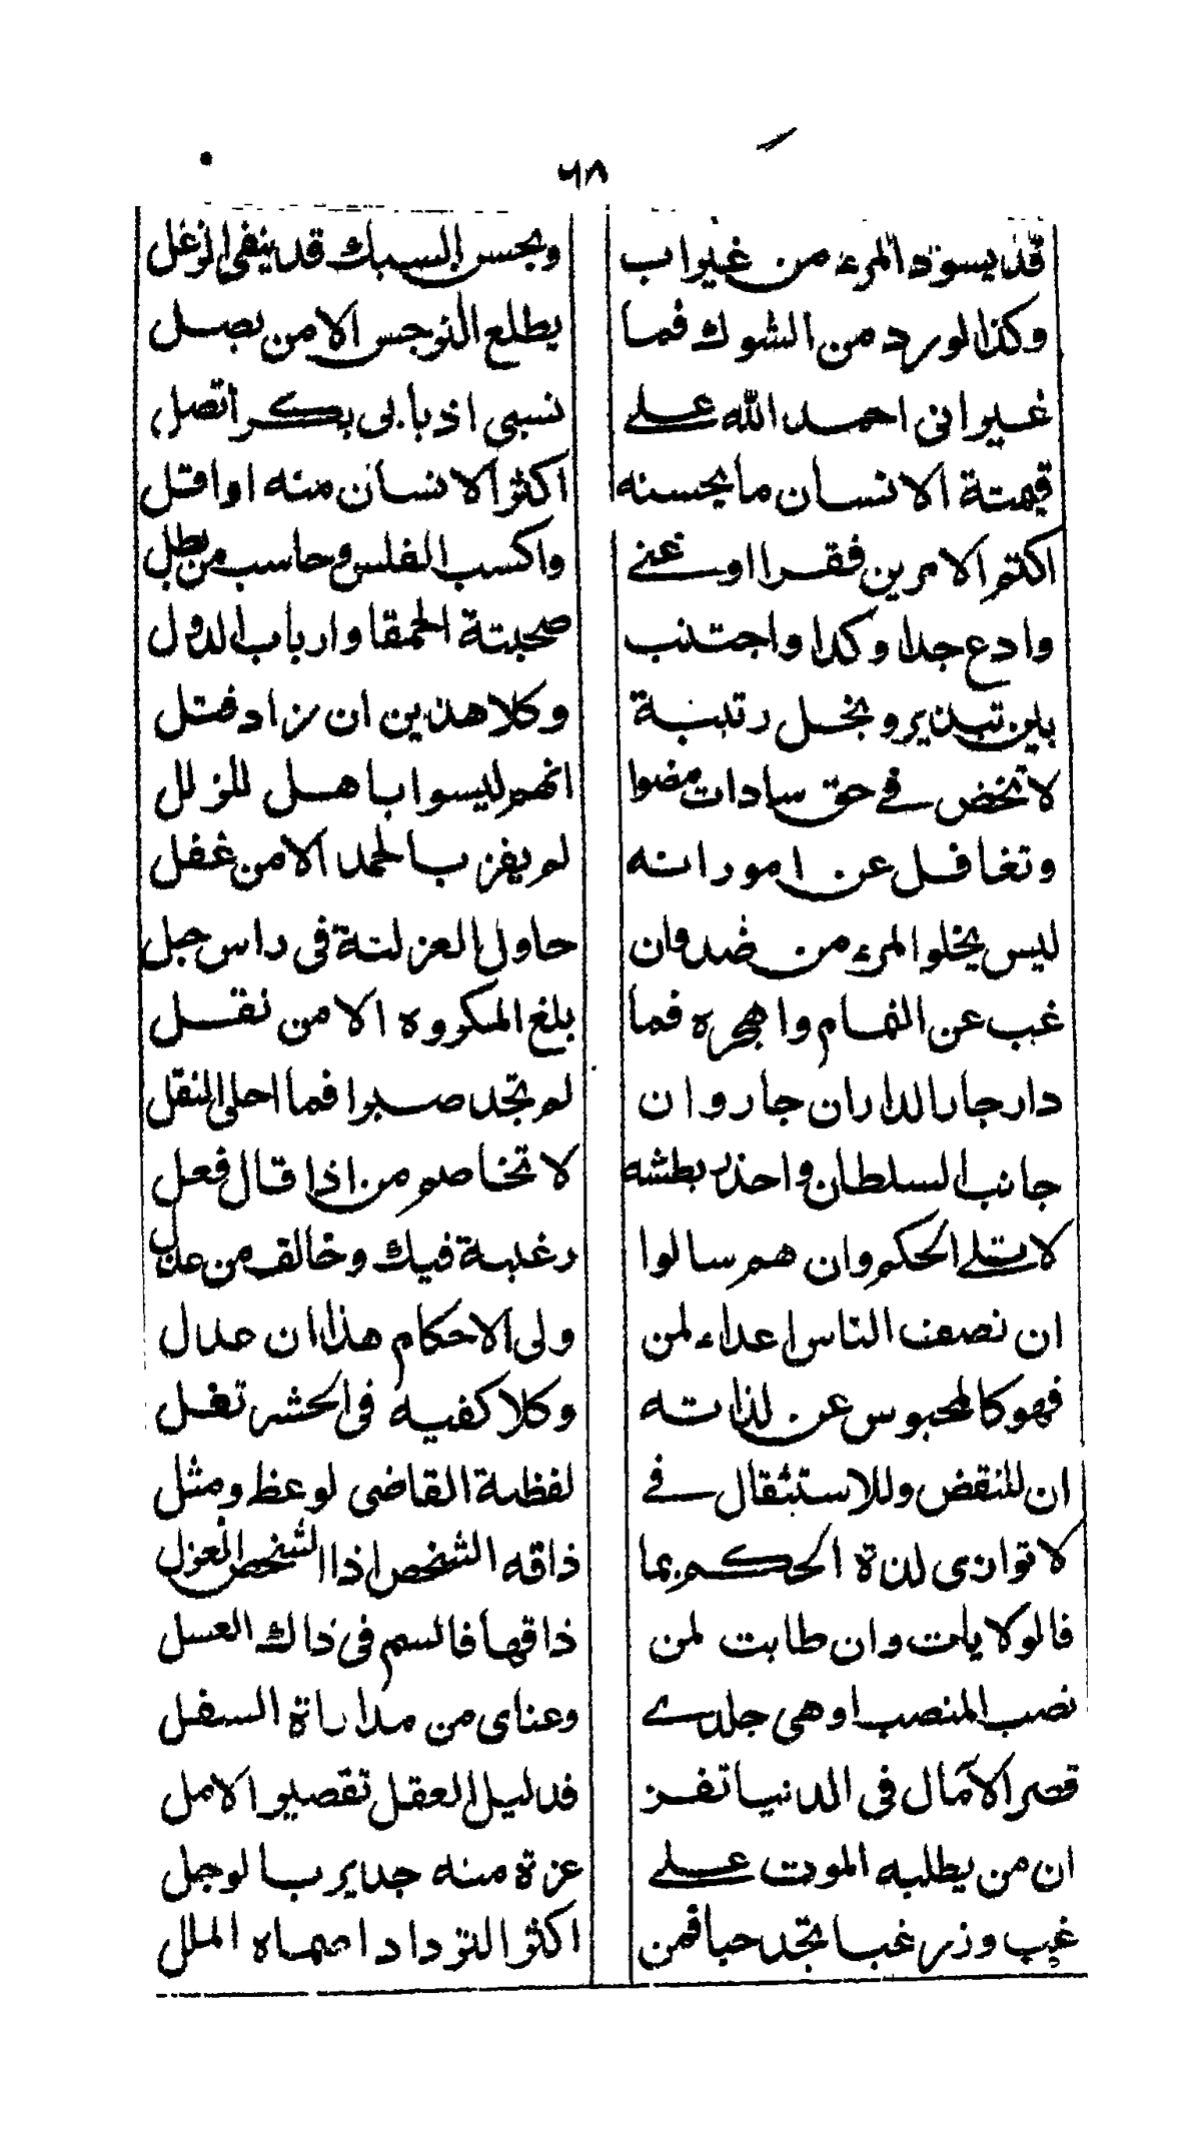 ٦٨
قد يسود المرء من غير اب وبحسن السبك قد ينفى الزغل
وكذا الورد من الشوك فما يطلع النرجس الا من بصل
غير انى احمد الله على نسبى اذ بابى بكر اتصل
قيمتة الانسان ما يحسنه اكثر الانسان منه او اقل
اكتم الامرين فقرا او غنى واكسب الفلس وحاسب من بطل
وادع جدا وكدا واجتنب صحبتة الحمقا وارباب الدول
بين تبذير وبخل رتبة وكلا هذين ان زاد قتل
لا تخض فى حق سادات مضوا انهم ليسوا باهل للزلل
وتغافل عن امور انه لم يفز بالحمد الا من غفل
ليس يخلوا المرء من ضد وان حاول العزلة فى راس جبل
غب عن النمام واهجره فما بلغ المكروه الا من نقل
دار جار الدار ان جار وان لم تجد صبرا فما احلى النقل
جانب السلطان واحذر بطشه لا تخاصم من اذا قال فعل
لا تلى الحكم وان هم سالوا رغبة فيك وخالف من عذل
ان نصف الناس اعداء لمن ولى الاحكام هذا ان عدل
فهو كالمحبوس عن لذاته وكلا كفيه فى الحشر تغل
ان للنقض وللاستثقال فى لفظة القاضى لوعظ ومثل
لا توازى لذة الحكم بما ذاقه الشخص اذا الشخص انعزل
فالولايات وان طابت لمن ذاقها فالسم فى ذاك العسل
نصب المنصب اوهى جلدى وعناى من مداراة السفل
قصر الآمال فى الدنيا تفز فدليل العقل تقصير الامل
ان من يطلبه الموت على عزة منه جدير بالوجل
غب وزر غبا تجد حبا فمن اكثر الترداد اصماه الملل